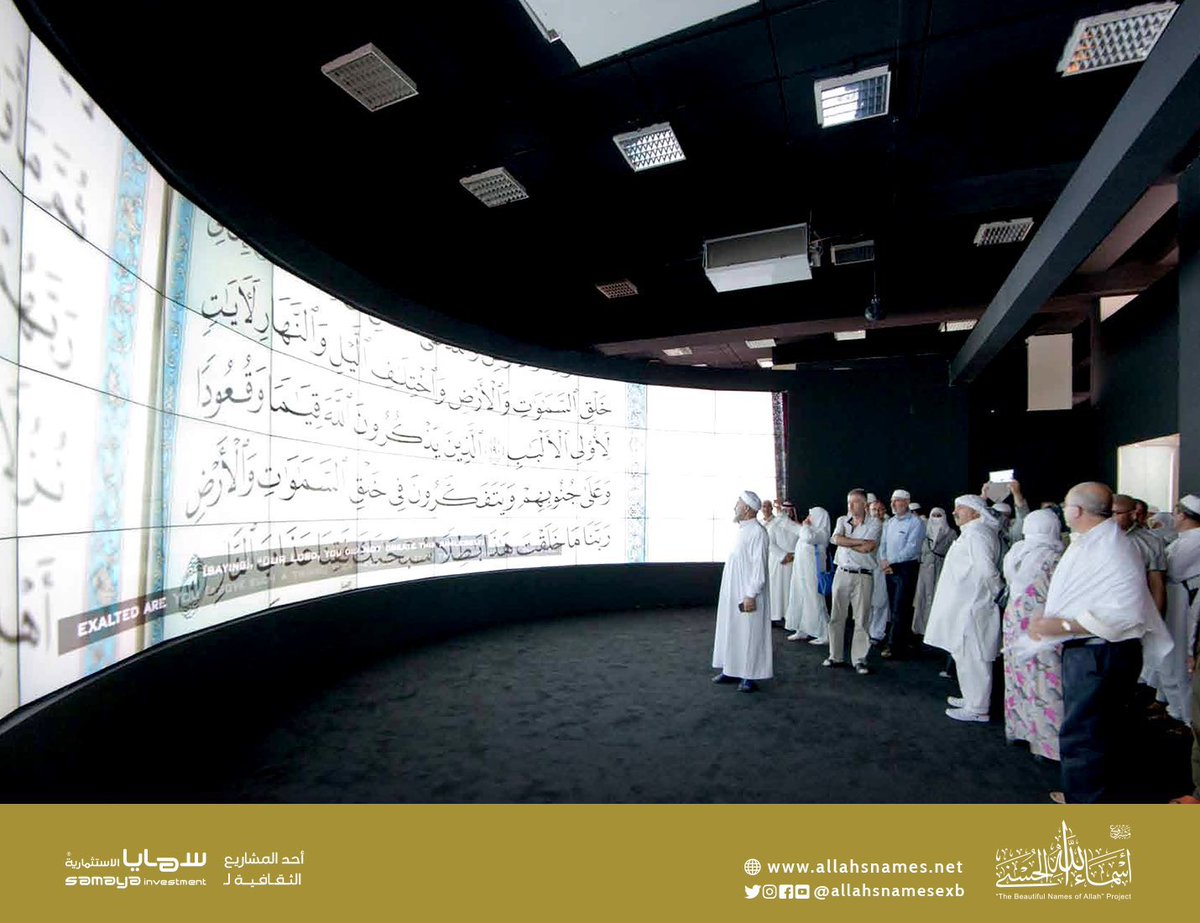 خَلْقِ ٱلسَّمَٰوَٰتِ وَٱلْأَرْضِ وَٱخْتِلَٰفِ ٱلَّيْلِ وَٱلنَّهَارِ لَـَٔايَٰتٍ
لِّأُو۟لِى ٱلْأَلْبَٰبِ ١٩٠ ٱلَّذِينَ يَذْكُرُونَ ٱللَّهَ قِيَٰمًا وَقُعُودًا
وَعَلَىٰ جُنُوبِهِمْ وَيَتَفَكَّرُونَ فِى خَلْقِ ٱلسَّمَٰوَٰتِ وَٱلْأَرْضِ
رَبَّنَا مَا خَلَقْتَ هَٰذَا بَٰطِلًا سُبْحَٰنَكَ فَقِنَا عَذَابَ ٱلنَّارِ
[SAYING], "OUR LORD, YOU DID NOT CREATE THIS
EXALTED ARE YOU ABOVE SUCH A
أحد المشاريع
الثقافية لـ
سمايا الاستثمارية
samaya investment
www.allahsnames.net
@allahsnamesexb
أسماء الله الحسنى
"The Beautiful Names of Allah" Project